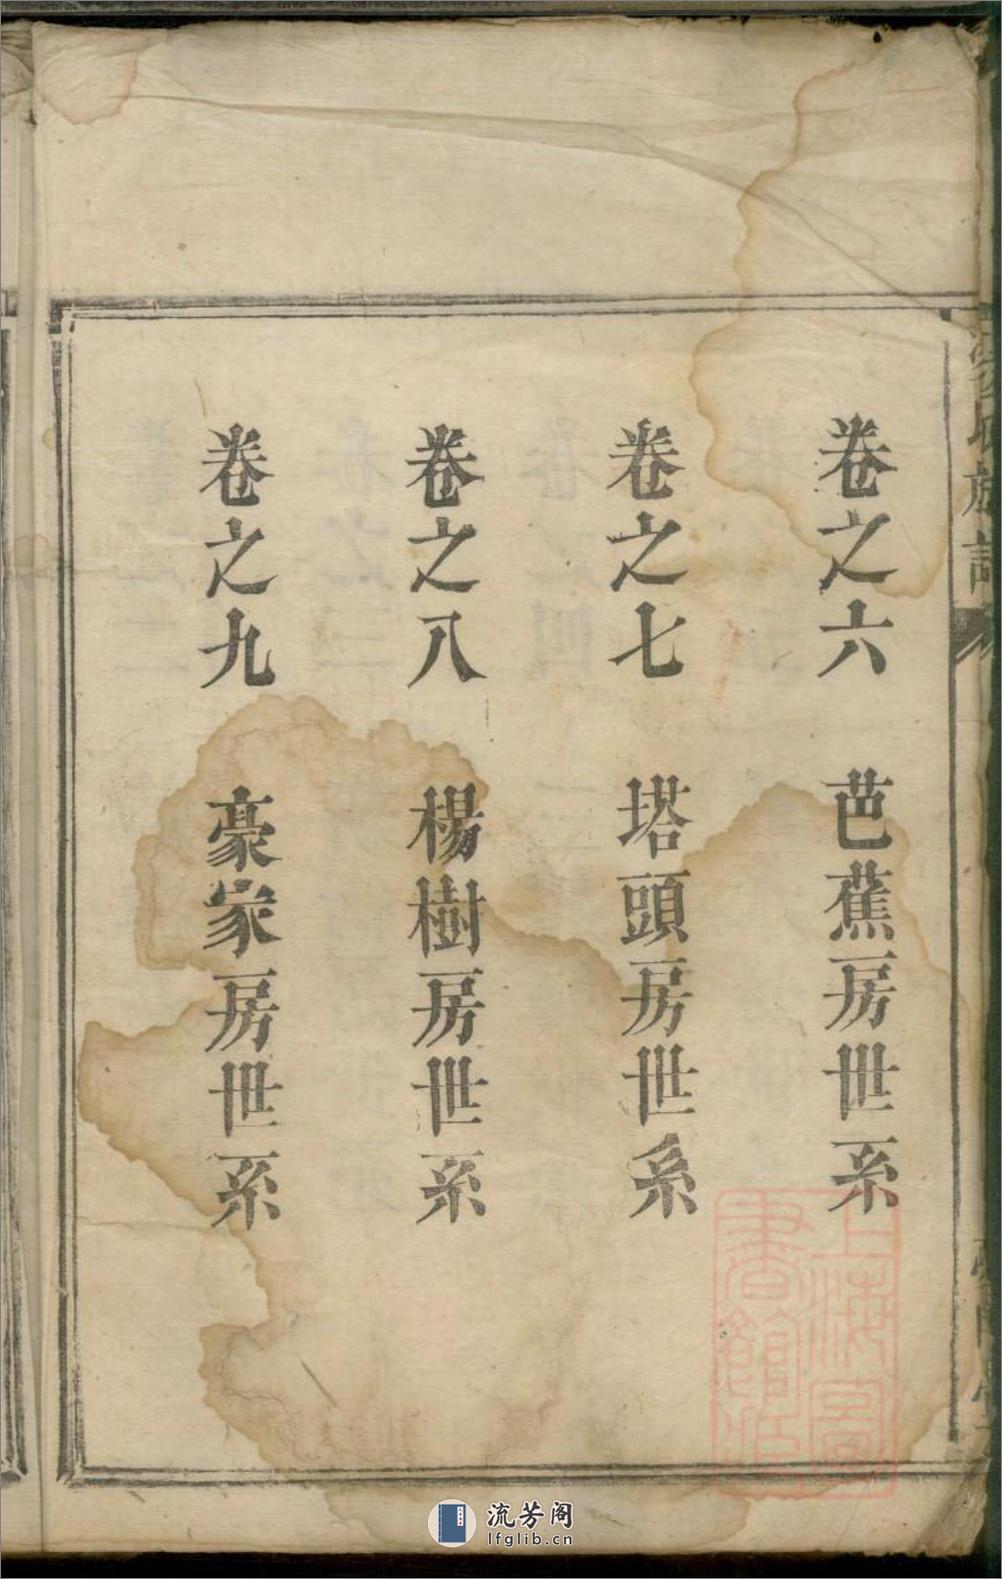 卷之六 芭蕉房世系
卷之七 塔頭房世系
卷之八 楊樹房世系
卷之九 豪家房世系
上海圖書館藏
流芳阁
lfglib.cn